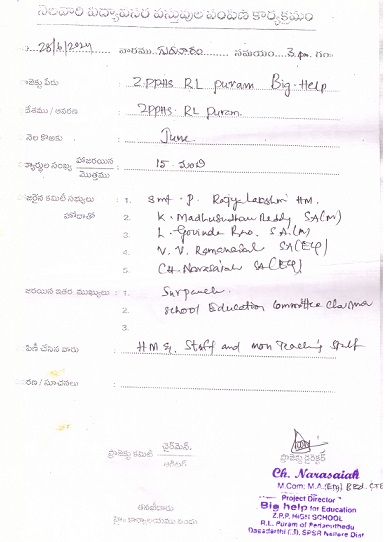 నెలవారి విద్యావసర వస్తువుల పంపిణి కార్యక్రమం
28/6/2024 వారము గురువారం సమయం 3 pm గం
జెక్టు పేరు : ZPPHS RL puram Big-Help
కేతము / ఆవరణ : ZPPHS. RL puram.
నెల కొఱకు : June
ద్యార్థుల సంఖ్య హాజరయిన / మొత్తము : 15 మంది
జరైన కమిటి సభ్యులు : 1. Smt. P. Rajya Lakshmi HM.
హోదాతో 2. K. Madhusudhan Reddy SA(M)
3. L. Govinda Rao. S.A.(M)
4. V. V. Ramanaiah SA(Eng)
5. CH. Narasaiah SA(Eng)
జరయిన ఇతర ముఖ్యులు : 1. Surpanch.
2. School Education Committee Chairman
3.
పిణీ చేసిన వారు : HM &, Staff and non Teaching staff
రణ / సూచనలు :
ప్రాజెక్టు కమిటి చైర్‌మెన్.
ప్రాజెక్టు డైరెక్టర్
Ch. Narasaiah
M.Com; M.A.(Eng) B.Ed. CTE
Project Director
Big help for Education
Z.P.P. HIGH SCHOOL
R.L. Puram of Perlamuthedu
Dagadarthi (M), SPSR Nellore Dist